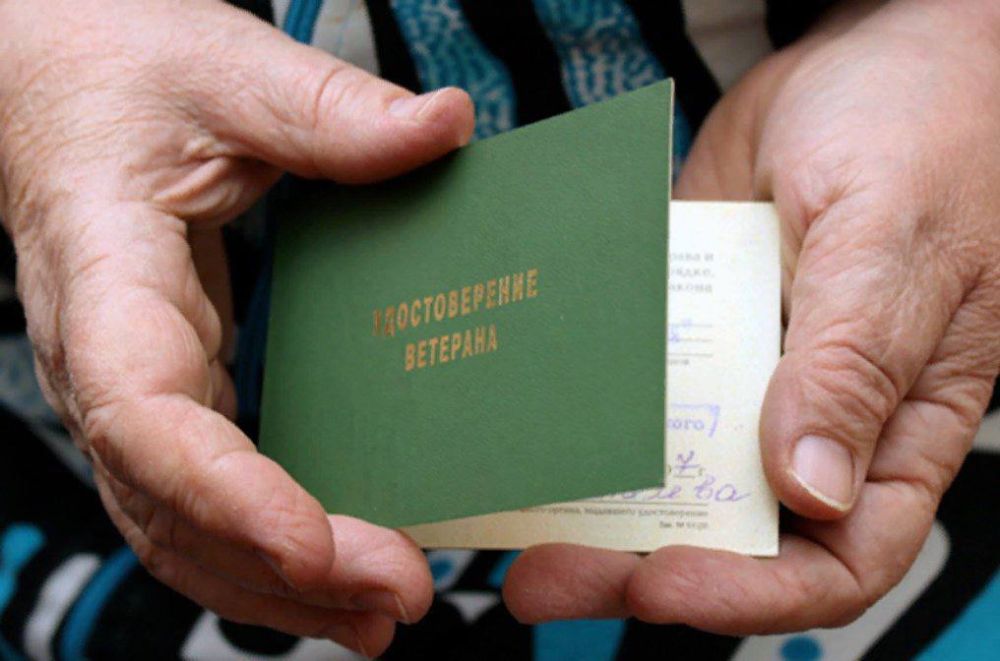 УДОСТОВЕРЕНИЕ
ВЕТЕРАНА
рава и
рядке,
акона
ого
7 г.
ева
органа, выдавшего удостоверение